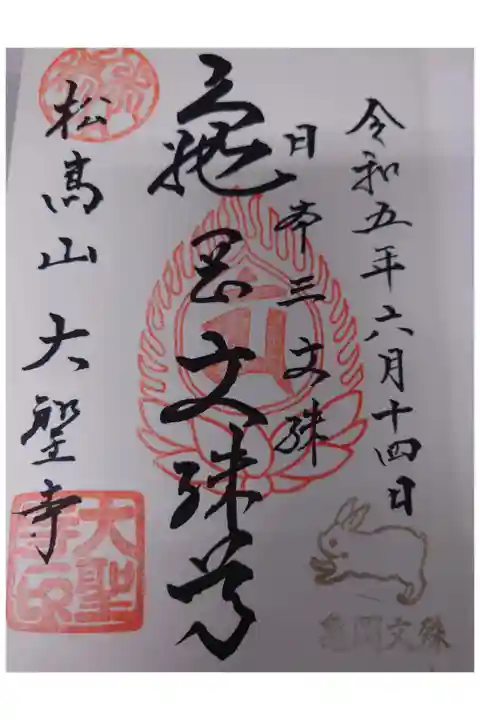 令和五年六月十四日
日本三文殊
亀岡文殊尊
松高山大聖寺
大聖
寺印
亀岡文殊